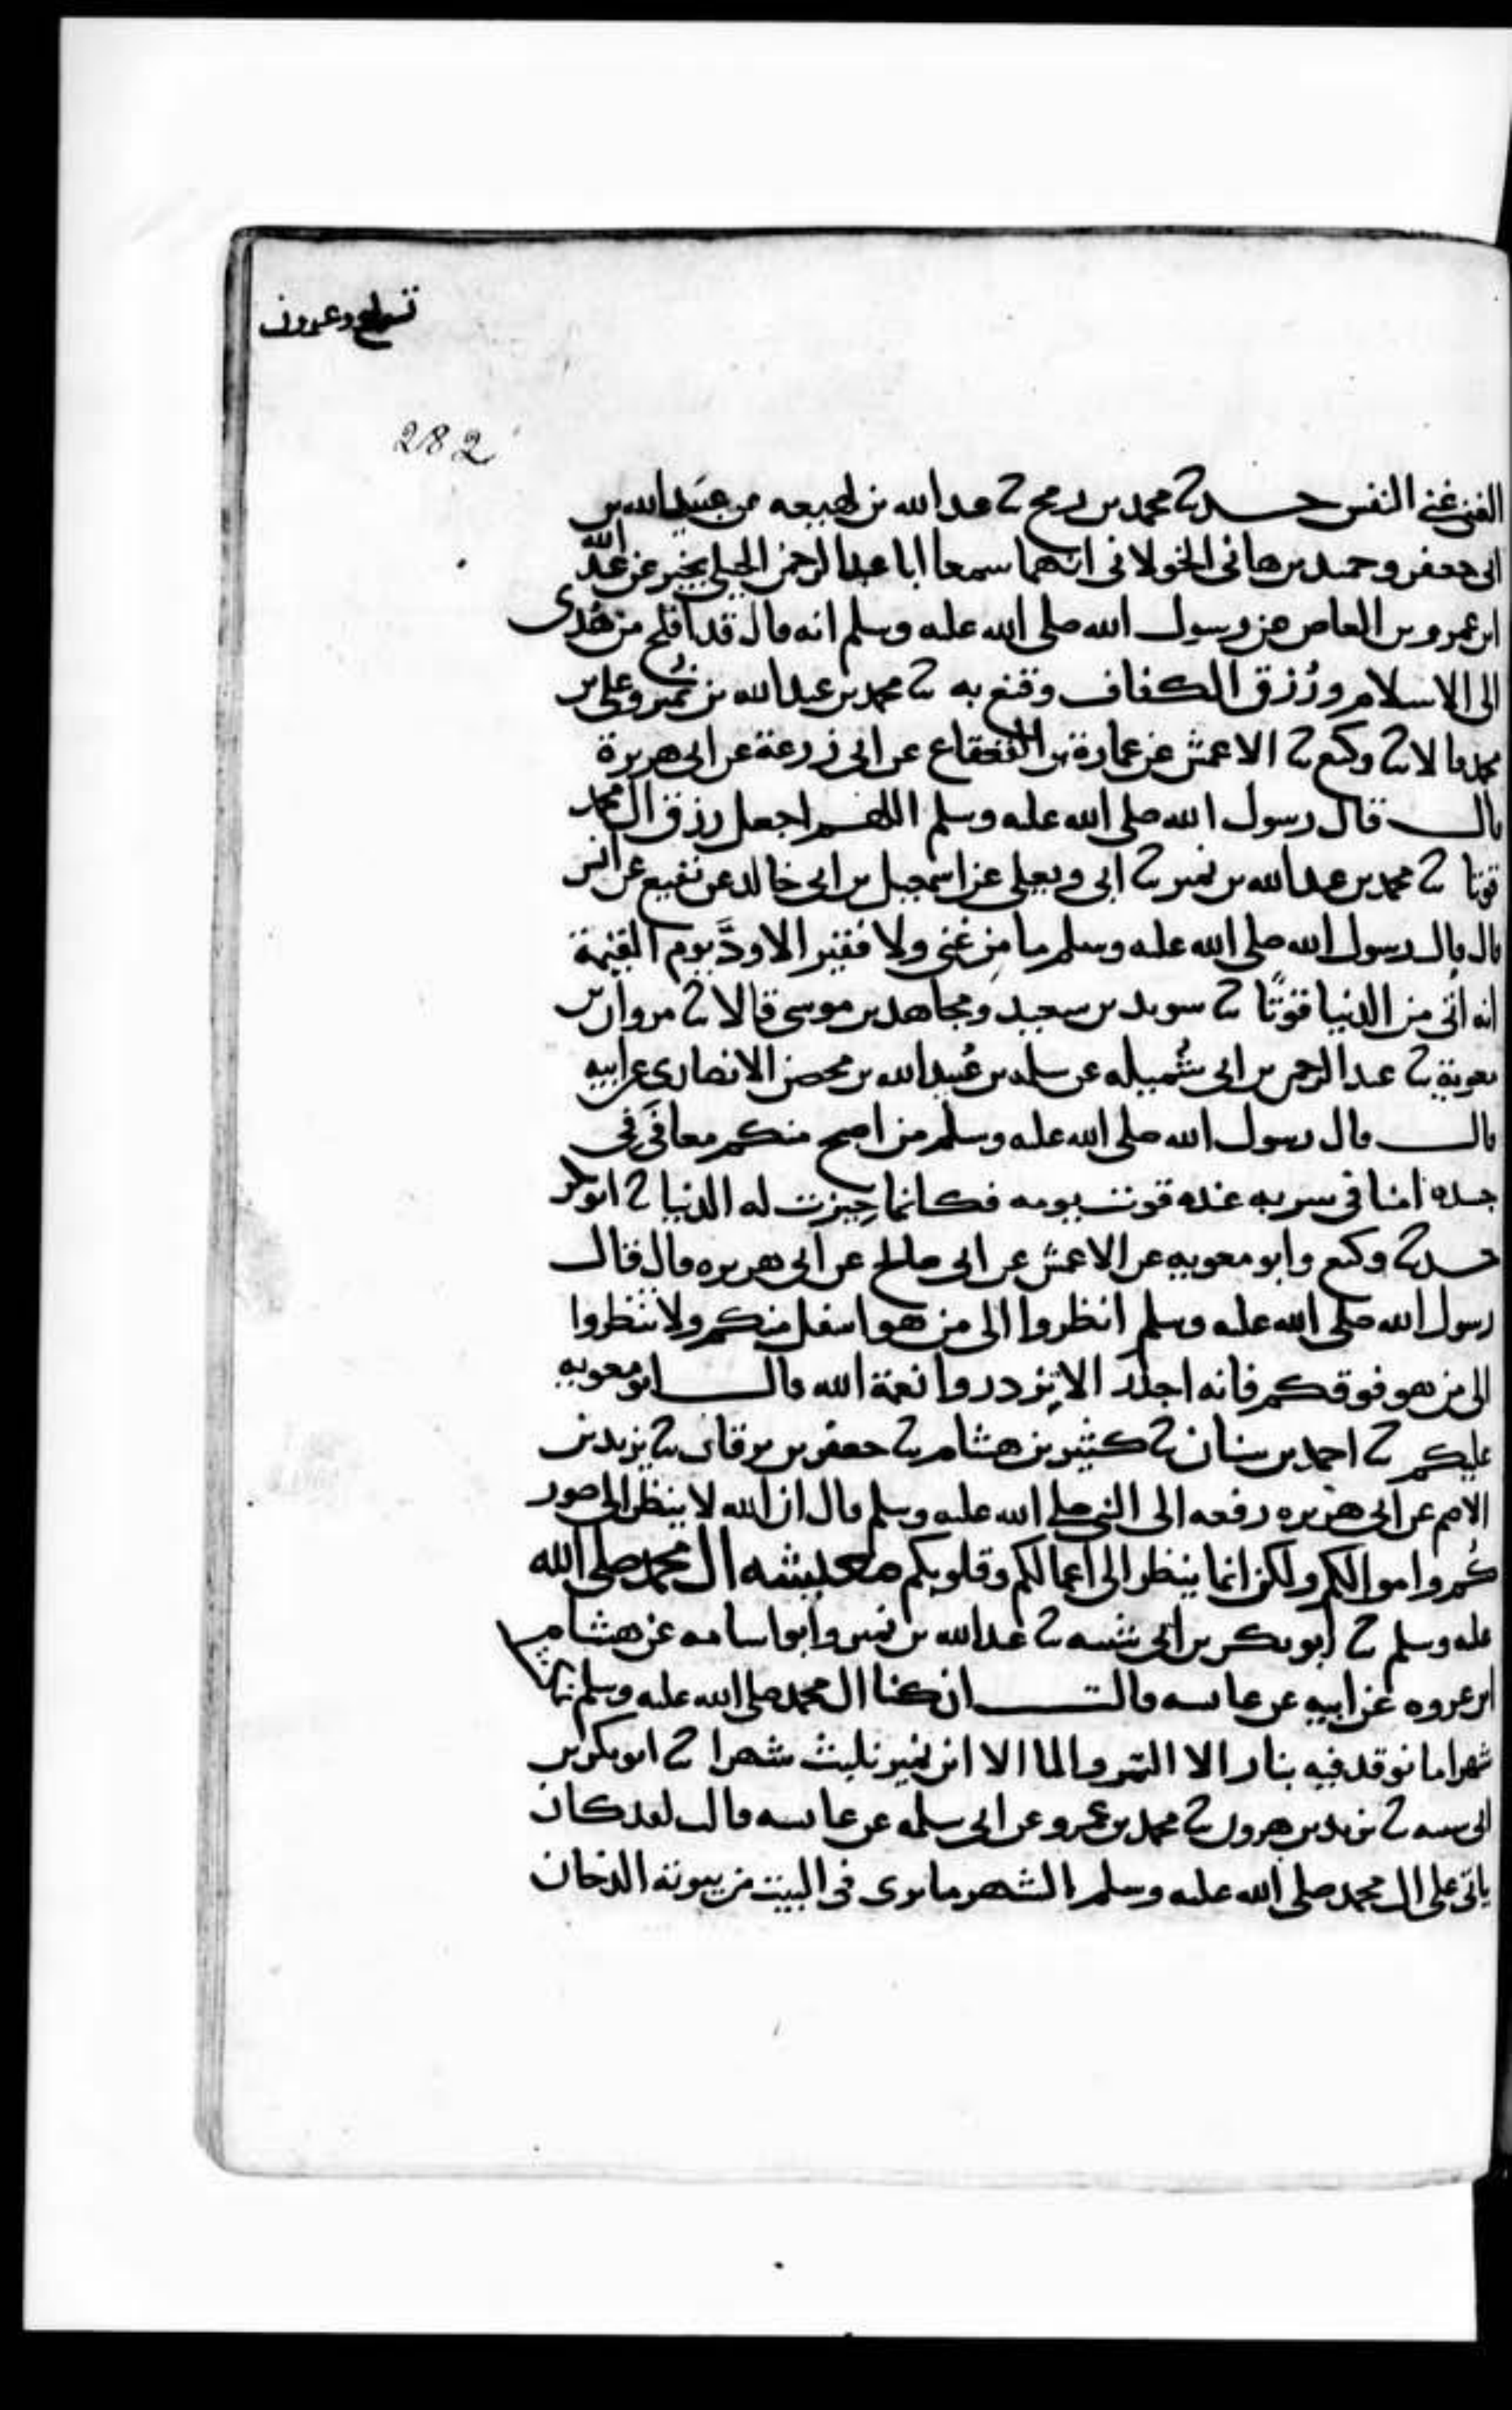 تسع وعشرون
282
الغنى غنى النفس حدثنا محمد بن رمح ثنا عبد الله بن لهيعه عن عبيد الله بن
ابى جعفر وحميد بن هانى الخولانى انهما سمعا ابا عبد الرحمن الحبلى يخبر عن عبد الله
ابن عمرو بن العاص عن رسول الله صلى الله عليه وسلم انه قال قد افلح من هُدى
الى الاسلام ورُزق الكفاف وقنع به ثنا محمد بن عبد الله بن نمير وعلى بن
محمد قالا ثنا وكيع ثنا الاعمش عن عمارة بن القعقاع عن ابى زرعة عن ابى هريرة
قال قال رسول الله صلى الله عليه وسلم اللهم اجعل رزق ال محمد
قوتا ثنا محمد بن عبد الله بن نمير ثنا ابى ويعلى عن اسمعيل بن ابى خالد عن نفيع عن انس
قال قال رسول الله صلى الله عليه وسلم ما من غنى ولا فقير الا ودَّ يوم القيمة
انه اتى من الدنيا قوتًا ثنا سويد بن سعيد ومجاهد بن موسى قالا ثنا مروان بن
معوية ثنا عبد الرحمن بن ابى شُميله عن سلمه بن عُبيد الله بن محصن الانصارى عن ابيه
قال قال رسول الله صلى الله عليه وسلم من اصبح منكم معافًى فى
جسده امنا فى سربه عنده قوت يومه فكانما حِيزت له الدنيا ثنا ابو بكر
حدثنا وكيع وابو معويه عن الاعمش عن ابى صالح عن ابى هريره قال قال
رسول الله صلى الله عليه وسلم انظروا الى من هو اسفل منكم ولا تنظروا
الى من هو فوقكم فانه اجدر الا تزدروا نعمة الله قال ابو معويه
عليكم ثنا احمد بن سنان ثنا كثير بن هشام ثنا جعفر بن برقان ثنا يزيد بن
الاصم عن ابى هريره رفعه الى النبى صلى الله عليه وسلم قال ان الله لا ينظر الى صور
كُم واموالكم ولكن انما ينظر الى اعمالكم وقلوبكم معيشه ال محمد صلى الله
عليه وسلم ثنا ابو بكر بن ابى شيبه ثنا عبد الله بن نمير وابو اسامه عن هشام
ابن عروه عن ابيه عن عايشه قالت ان كنا ال محمد صلى الله عليه وسلم نمكث
شهرا ما نوقد فيه بنار الا التمر والما الا ان نمير نلبث شهرا ثنا ابو بكر بن
ابى شيبه ثنا يزيد بن هرون ثنا محمد بن عمرو عن ابى سلمه عن عايشه قالت لقد كان
ياتى على ال محمد صلى الله عليه وسلم الشهر ما يرى فى البيت من بيوته الدخان